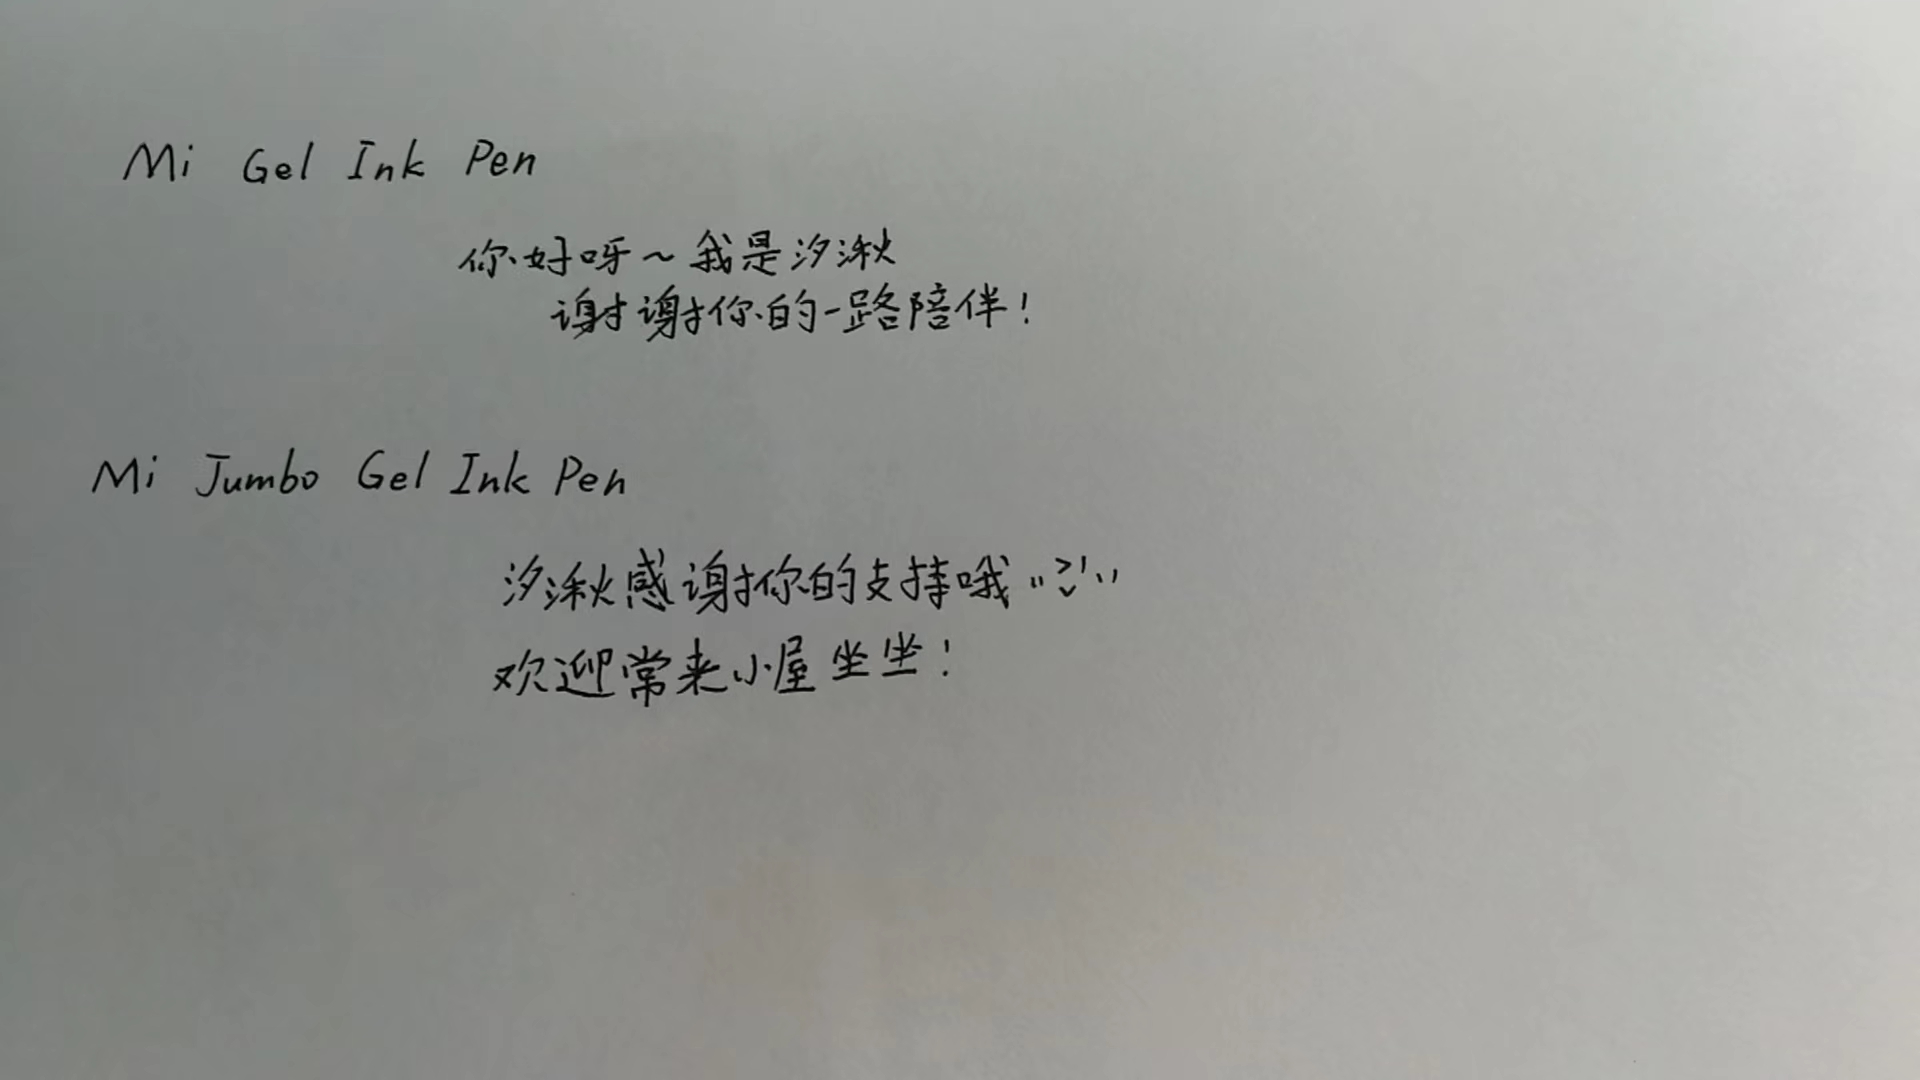 Mi Gel Ink Pen
你好呀～我是汐湫
谢谢你的一路陪伴！
Mi Jumbo Gel Ink Pen
汐湫感谢你的支持哦
欢迎常来小屋坐坐！